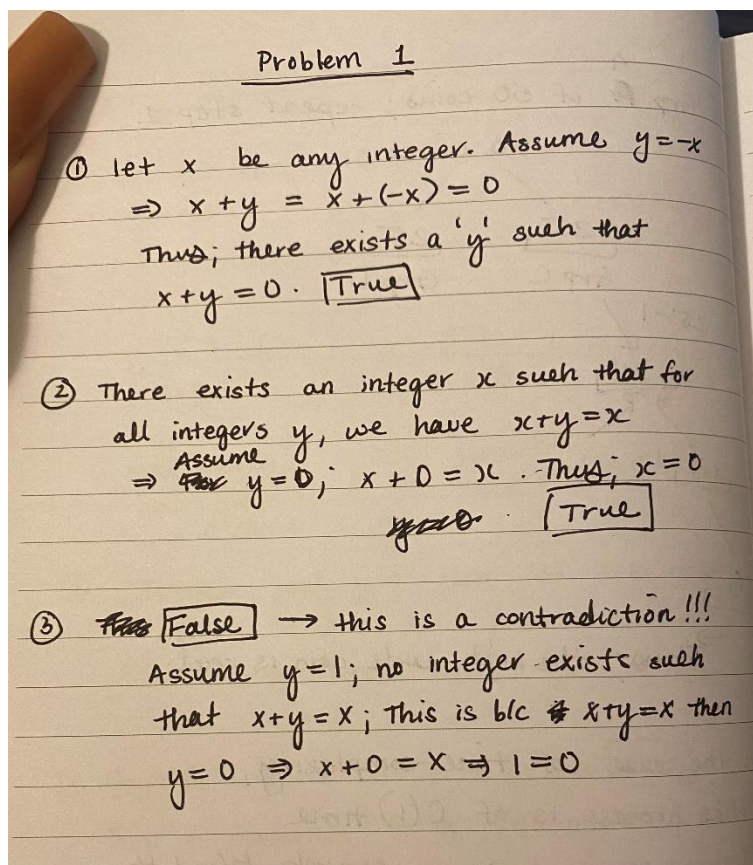 Problem 1
① let x be any integer. Assume y=-x
⇒ x+y = x+(-x) = 0
Thus; there exists a 'y' such that
x+y = 0. True
② There exists an integer x such that for
all integers y, we have x+y=x
Assume
⇒ y=0; x+0=x. Thus; x=0
True
③ False → this is a contradiction!!!
Assume y=1; no integer exists such
that x+y=x; This is b/c x+y=x then
y=0 ⇒ x+0=x ⇒ 1=0